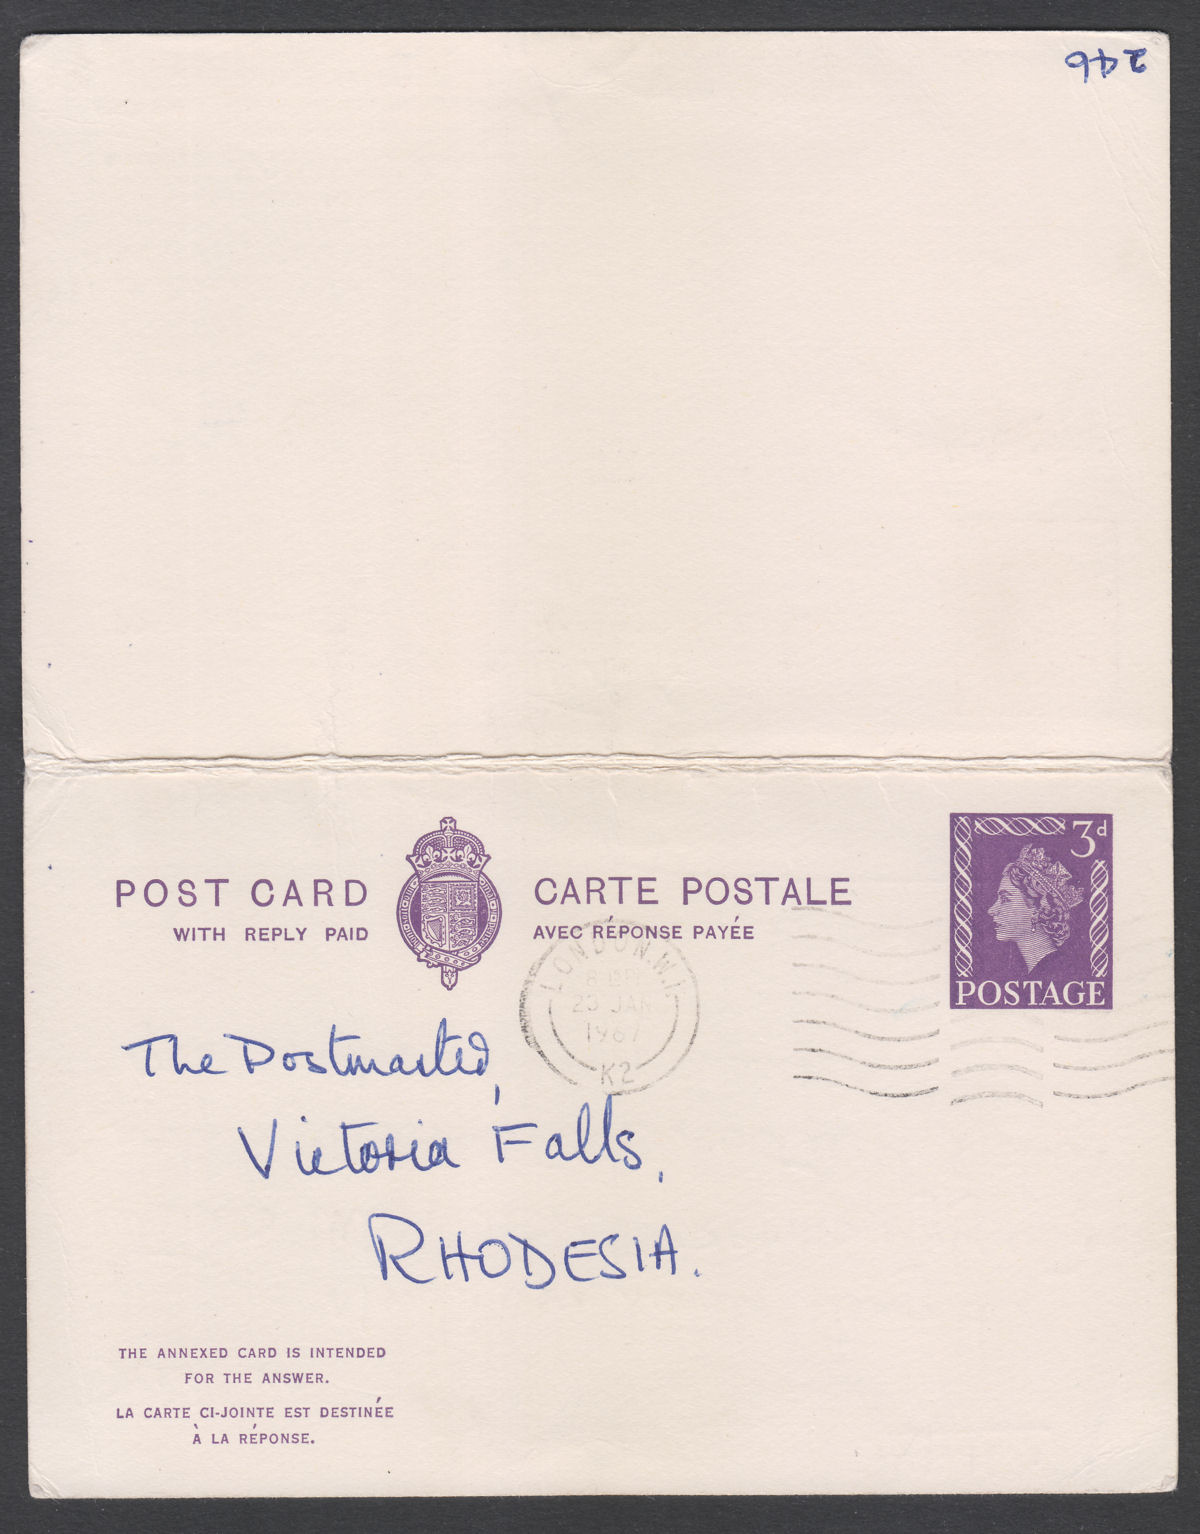 246
POST CARD
WITH REPLY PAID
CARTE POSTALE
AVEC RÉPONSE PAYÉE
3d
POSTAGE
LONDON.W.1.
23 JAN
1967
K2
The Postmaster,
Victoria Falls,
RHODESIA.
THE ANNEXED CARD IS INTENDED
FOR THE ANSWER.
LA CARTE CI-JOINTE EST DESTINÉE
À LA RÉPONSE.